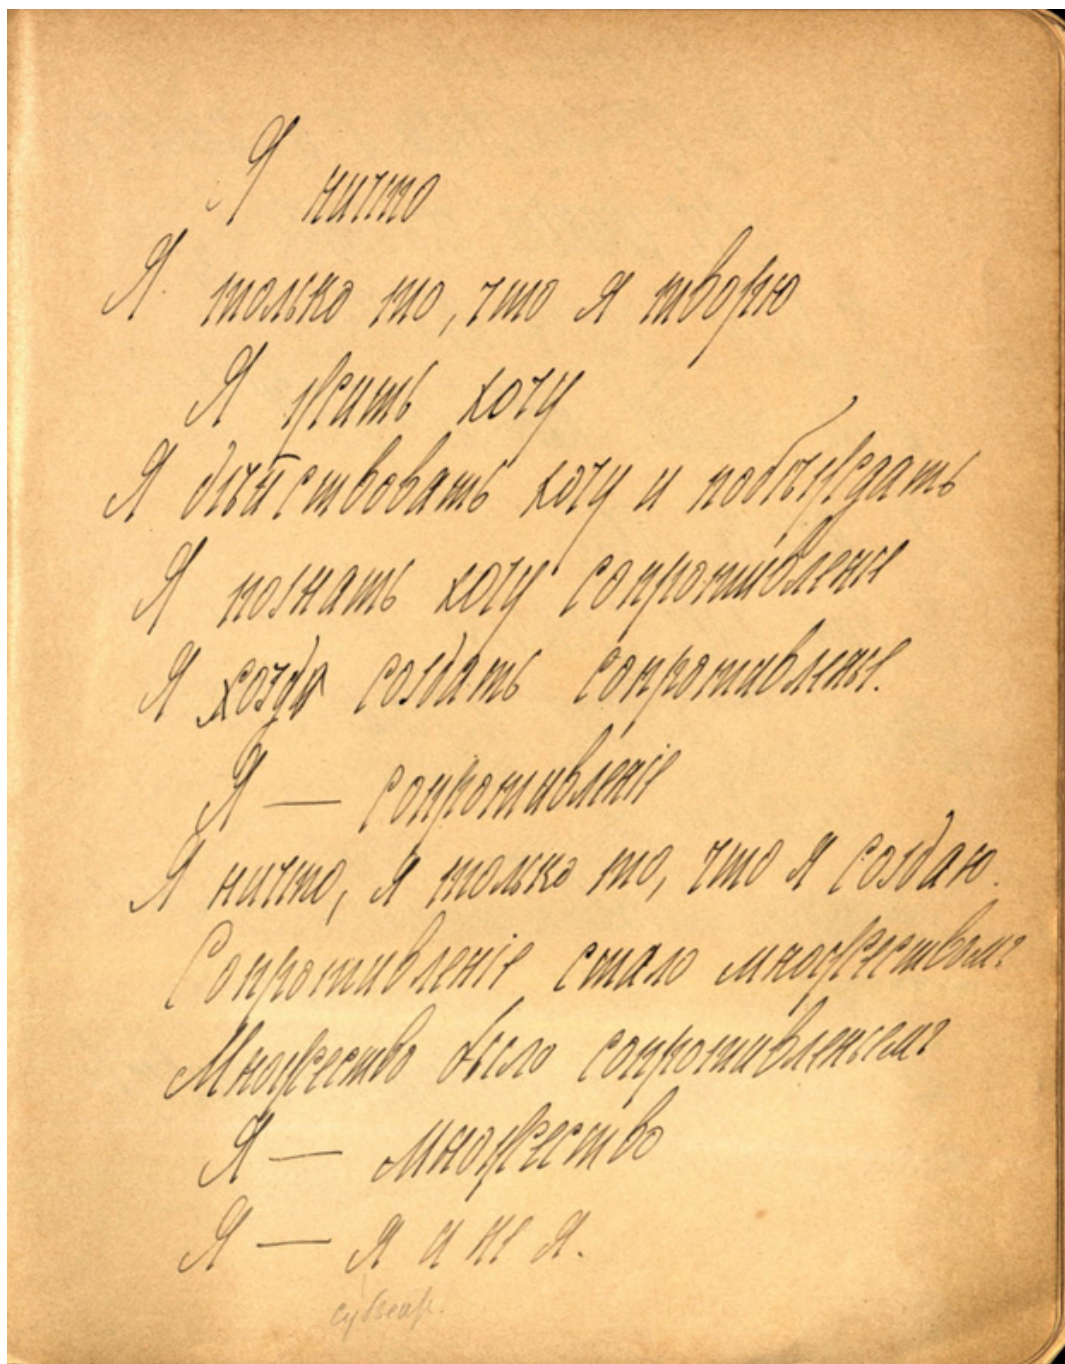 Я ничто
Я только то, что я творю
Я жить хочу
Я дѣйствовать хочу и побѣждать
Я познать хочу сопротивленіе
Я создать сопротивленье.
Я — сопротивленіе
Я ничто, я только то, что я создаю.
Сопротивленіе стало множествомъ
Множество было сопротивленьемъ
Я — множество
Я — я и не я.